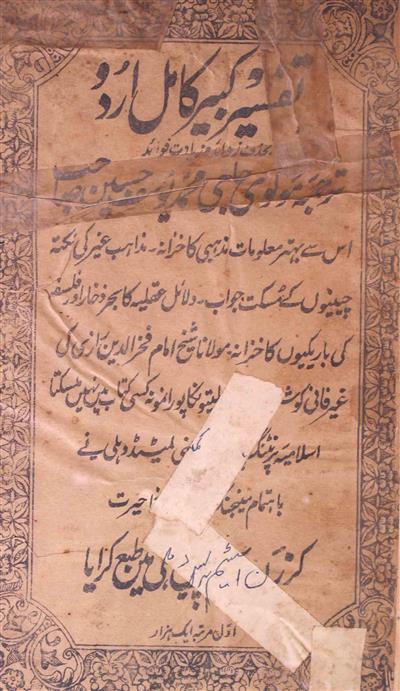 تفسیر کبیر کامل اردو
بحذف زوائد و زیادت فوائد
ترجمہ مولوی حاجی محمد یوسف حسین صاحب
اس سے بہتر معلومات مذہبی کا خزانہ ۔ مذاہب غیر کی نکتہ
چینیوں کے مسکت جواب ۔ دلائل عقلیہ کا بحر ذخار اور فلسفہ
کی باریکیوں کا خزانہ مولانا شیخ امام فخر الدین رازی کی
غیر فانی کوشش پورا نمونہ کسی کتاب میں نہیں مل سکتا
اسلامیہ پرنٹنگ کمپنی لمیٹڈ دہلی نے
باہتمام حیرت
کرزن اسٹیم پریس دہلی میں طبع کرایا
اول مرتبہ ایک ہزار